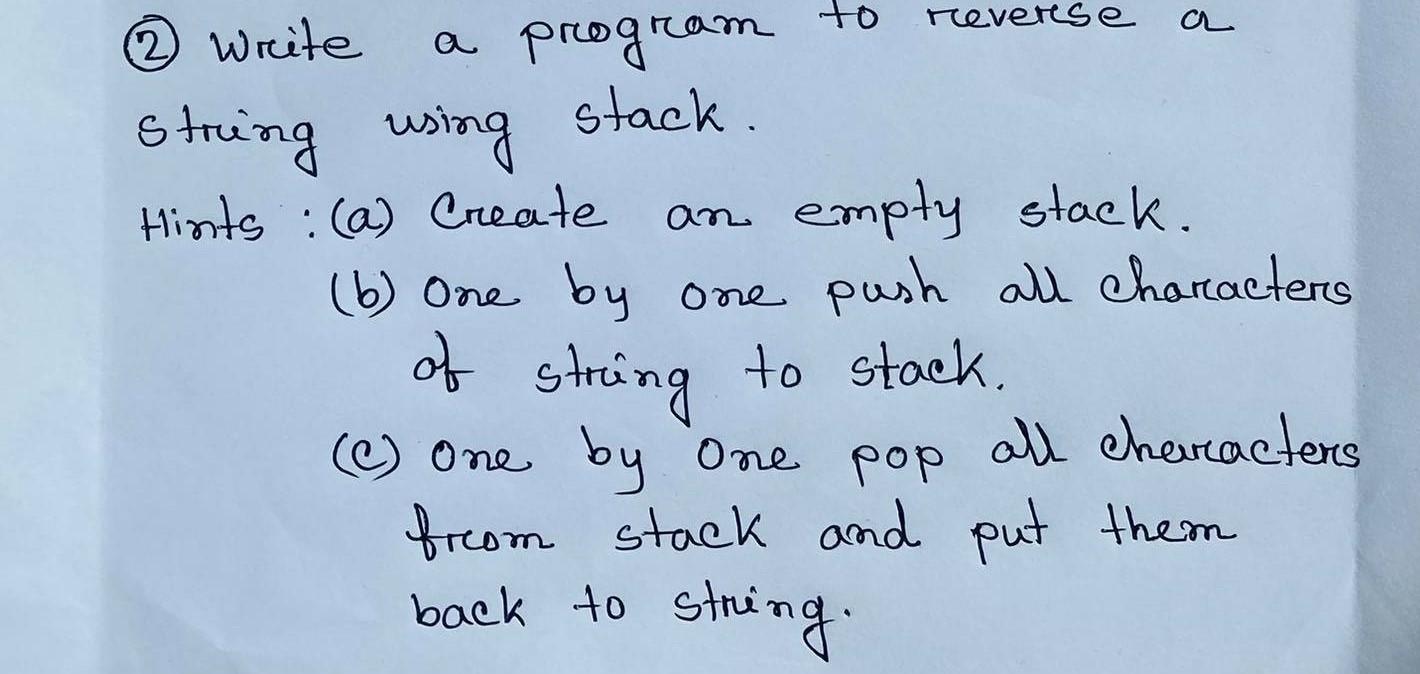 ② Write a program to reverse a
string using stack.
Hints : (a) Create an empty stack.
(b) One by one push all characters
of string to stack.
(c) One by one pop all characters
from stack and put them
back to string.